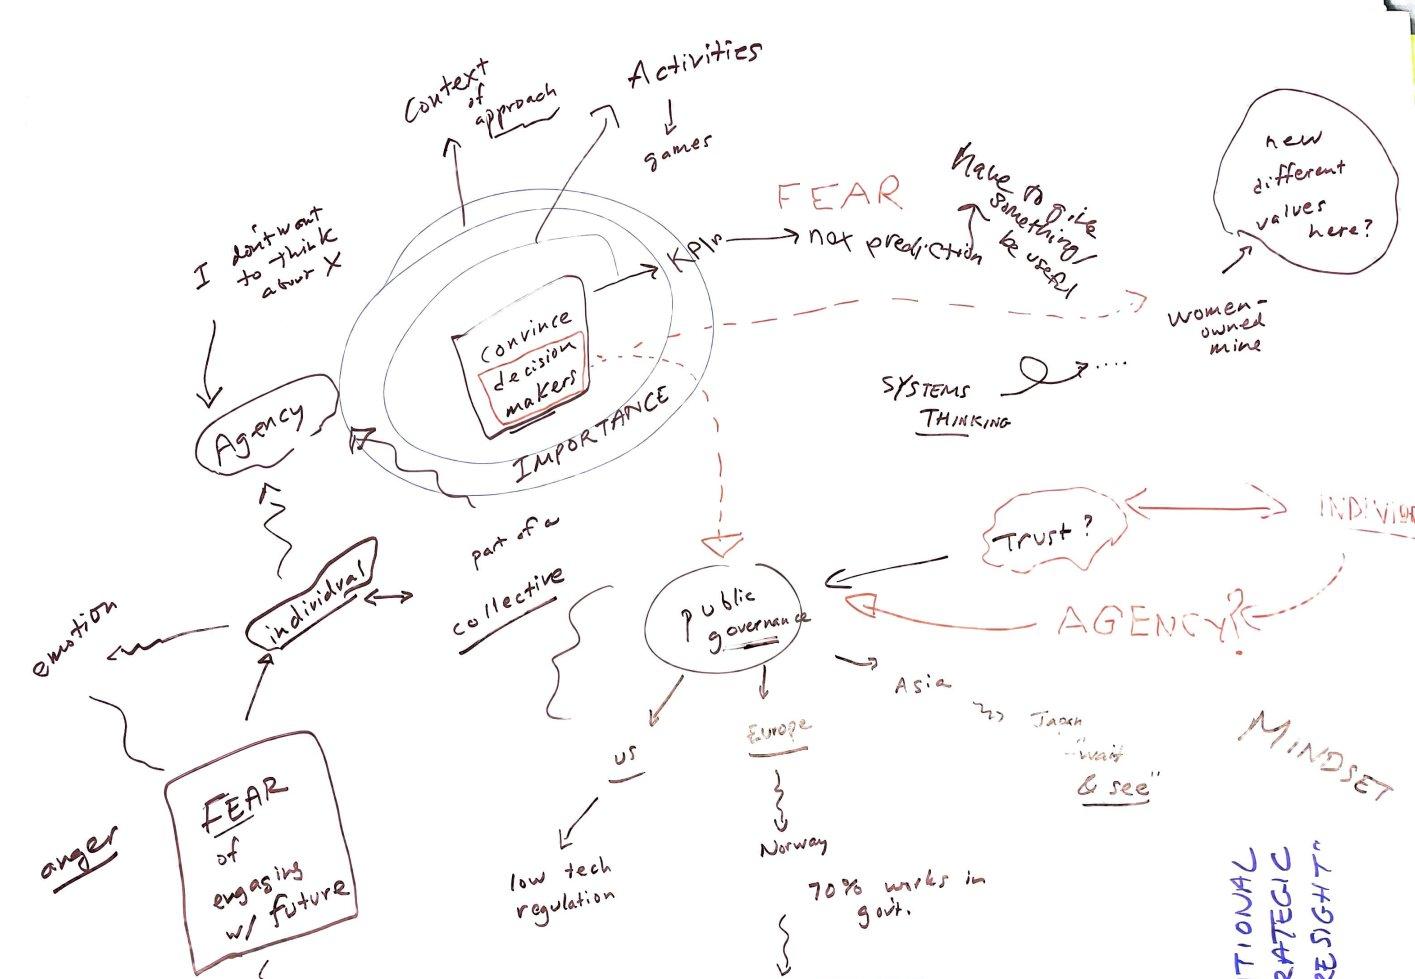 Context
of
approach
Activities
games
I don't want
to think
about X
FEAR
Have to give
something/
be useful
KPIs
not prediction
new
different
values
here?
convince
decision
makers
IMPORTANCE
women-
owned
mine
SYSTEMS
THINKING
Agency
Trust?
INDIVID
part of a
collective
individual
emotion
public
governance
AGENCY?
Asia
Japan
"wait
& see"
MINDSET
US
Europe
low tech
regulation
Norway
70% works in
gov't.
FEAR
of
engaging
w/ future
anger
TIONAL
RATEGIC
RESIGHT"